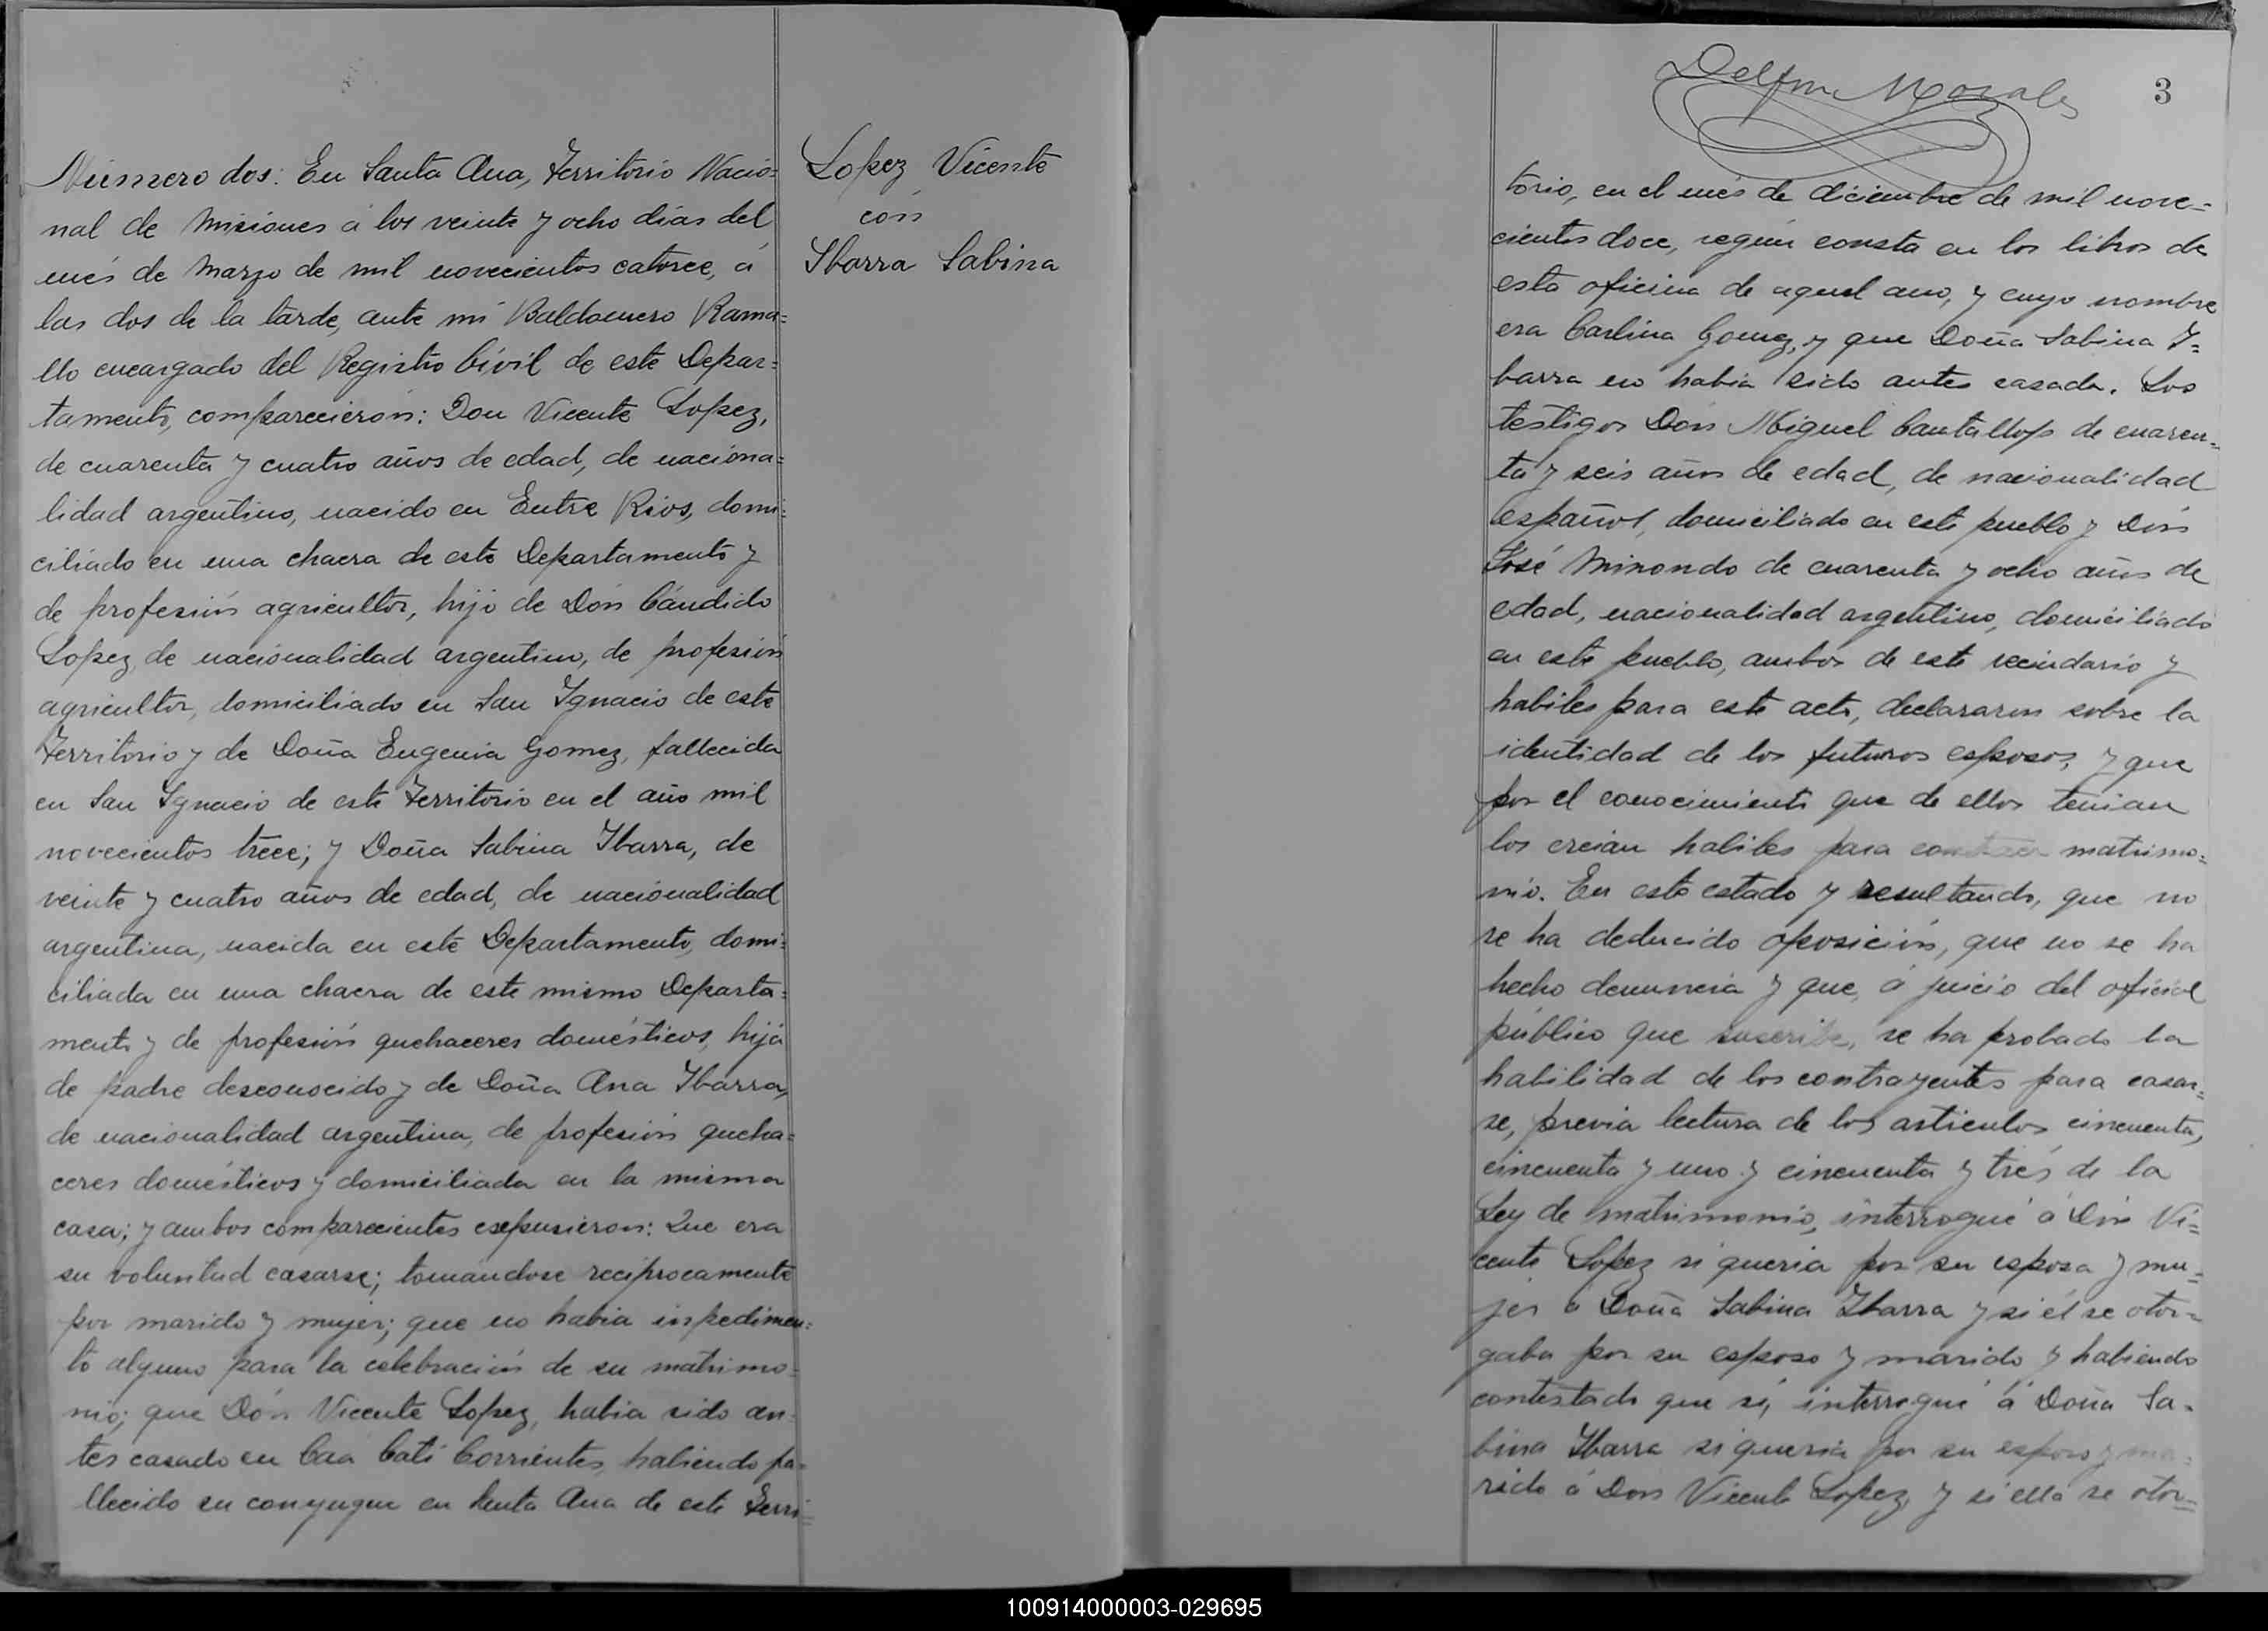 Número dos: En Santa Ana, Territorio Nacio=
nal de Misiones á los veinte y ocho días del
més de Marzo de mil novecientos catorce, á
las dos de la tarde, ante mí Baldomero Rama=
llo encargado del Registro Civil de este Depar=
tamento, comparecieron: Don Vicente Lopez,
de cuarenta y cuatro años de edad, de naciona=
lidad argentino, nacido en Entre Rios, domi=
ciliado en una chacra de este Departamento y
de profesión agricultor, hijo de Don Cándido
Lopez, de nacionalidad argentino, de profesión
agricultor, domiciliado en San Ignacio de este
Territorio y de Doña Eugenia Gomez, fallecida
en San Ignacio de este Territorio en el año mil
novecientos trece; y Doña Sabina Ibarra, de
veinte y cuatro años de edad, de nacionalidad
argentina, nacida en este Departamento, domi=
ciliada en una chacra de este mismo Departa=
mento y de profesión quehaceres domésticos, hija
de padre desconocido y de Doña Ana Ibarra,
de nacionalidad argentina, de profesión queha=
ceres domésticos y domiciliada en la misma
casa; y ambos comparecientes expusieron: Que era
su voluntad casarse; tomandose reciprocamente
por marido y mujer; que no habia impedimen=
to alguno para la celebración de su matrimo=
nio; que Don Vicente Lopez, habia sido an=
tes casado en Caa Cati Corrientes, habiendo fa=
llecido su conyugue en Santa Ana de este Terri=
Lopez Vicente
con
Ibarra Sabina
Delfin Morales
3
torio, en el més de diciembre de mil nove=
cientos doce, según consta en los libros de
esta oficina de aquel ano, y cuyo nombre
era Carlina Gomez, y que Doña Sabina I=
barra no habia sido antes casada. Los
testigos Don Miguel Cantallops de cuaren=
ta y seis años de edad, de nacionalidad
español, domiciliado en este pueblo y Don
José Minondo de cuarenta y ocho años de
edad, nacionalidad argentino, domiciliado
en este pueblo, ambos de este vecindario y
habiles para este acto, declararon sobre la
identidad de los futuros esposos, y que
por el conocimiento que de ellos tenian
los creian habiles para contraer matrimo=
nio. En este estado y resultando, que no
se ha deducido oposición, que no se ha
hecho denuncia y que, á juicio del oficial
público que suscribe, se ha probado la
habilidad de los contrayentes para casar=
se, previa lectura de los articulos cincuenta,
cincuenta y uno y cincuenta y tres de la
Ley de matrimonio, interrogué á Don Vi=
cente Lopez si queria por su esposa y mu=
jer á Doña Sabina Ibarra y si él se otor=
gaba por su esposo y marido y habiendo
contestado que sí, interrogué á Doña Sa=
bina Ibarra si queria por su esposo y ma=
rido á Don Vicente Lopez, y si ella se otor=
100914000003-029695